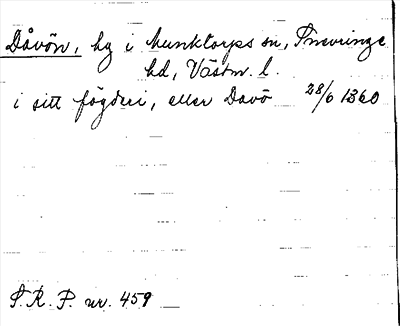 Dåvön, hg i Munktorps sn, Snevringe
hd, Västm. l.
i sitt fögderi, eller Davö 28/6 1360
S. R. P. nr. 459